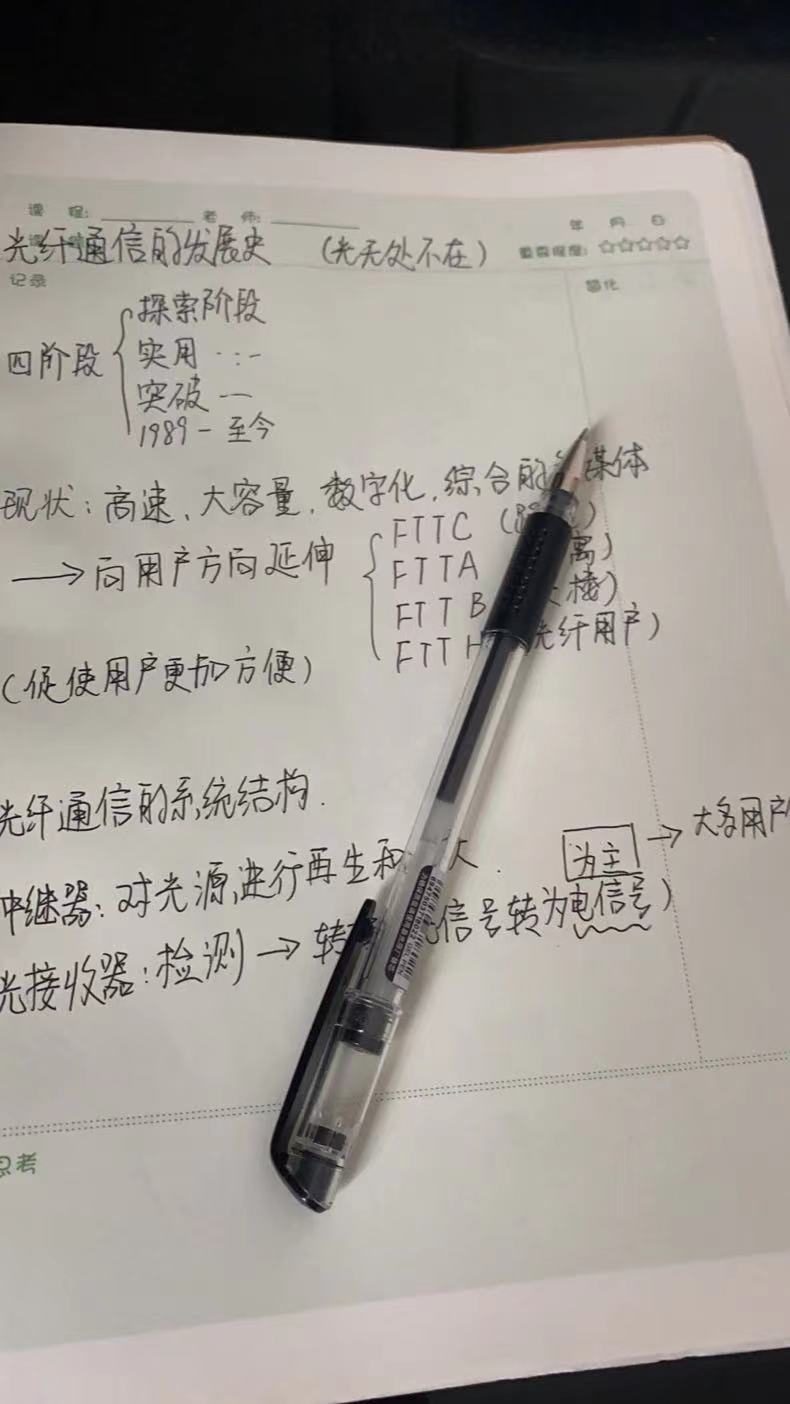 课 程: 老 师: 年 月 日
光纤通信的发展史 (光无处不在) 重要程度: ☆☆☆☆☆
记录
四阶段
探索阶段
实用
突破
1989 - 至今
现状: 高速、大容量, 数字化, 综合的 媒体
→向用户方向延伸
FTTC
FTTA
FTTB
FTTH 光纤用户)
(促使用户更加方便)
光纤通信的系统结构.
中继器: 对光源进行再生和 大. 为主 → 大多用户
光接收器: 检测 → 转 信号转为电信号)
思考